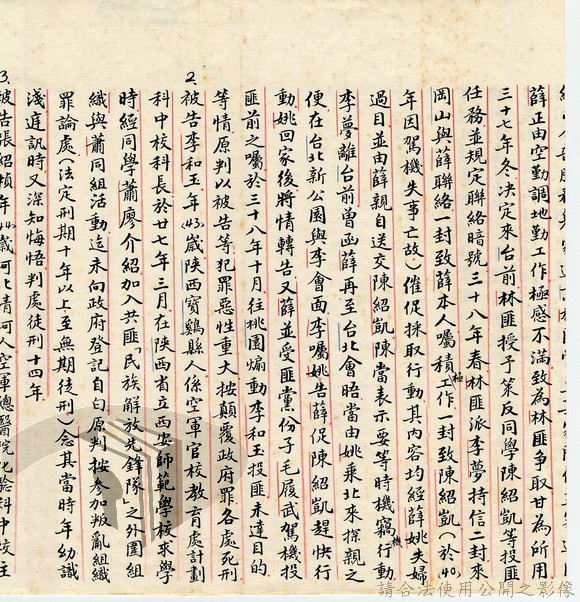 薛正由空勤調地勤工作極感不滿致為林匪爭取甘為所用
三十七年冬決定來台前林匪授予策反同學陳紹凱等投匪
任務並規定聯絡暗號三十八年春林匪派李夢持信二封來
岡山與薛聯絡一封致薛本人囑積極工作一封致陳紹凱(於40.
年因駕機失事亡故)催促採取行動其內容均經薛姚夫婦
過目並由薛親自送交陳紹凱陳當表示要等時機竊機行動
李夢離台前曾函薛再至台北會晤當由姚乘北來探親之
便在台北新公園與李會面李囑姚告薛促陳紹凱趕快行
動姚回家後將情轉告又薛並受匪黨份子毛履武駕機投
匪前之囑於三十八年十月往桃園煽動李和玉投匪未達目的
等情原判以被告等犯罪惡性重大按顛覆政府罪各處死刑
2.被告李和玉年(43.歲陝西寶鷄縣人係空軍官校教育處計劃
科中校科長於廿七年三月在陝西省立西安師範學校求學
時經同學蕭廖介紹加入共匪民族解放先鋒隊之外圍組
織與蕭同組活動迄未向政府登記自白原判按參加叛亂組織
罪論處(法定刑期十年以上至無期徒刑)念其當時年幼識
淺庭訊時又深知悔悟判處徒刑十四年
3.被告張紹楨年44.歲河北清河人空軍總醫院化驗科中校主
請合法使用公開之影像